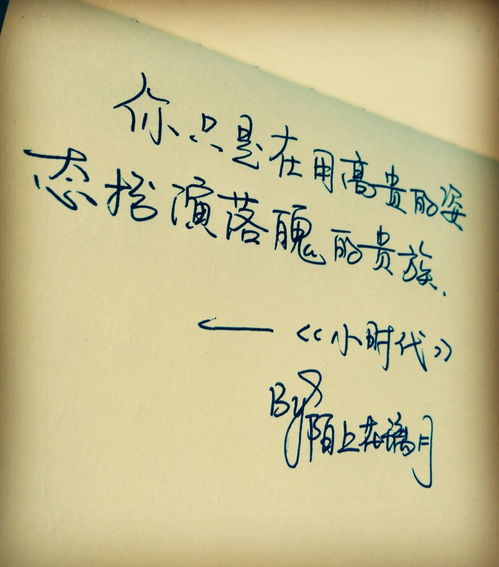 你只是在用高贵的姿
态扮演落魄的贵族.
——《小时代》
By 陌上 月